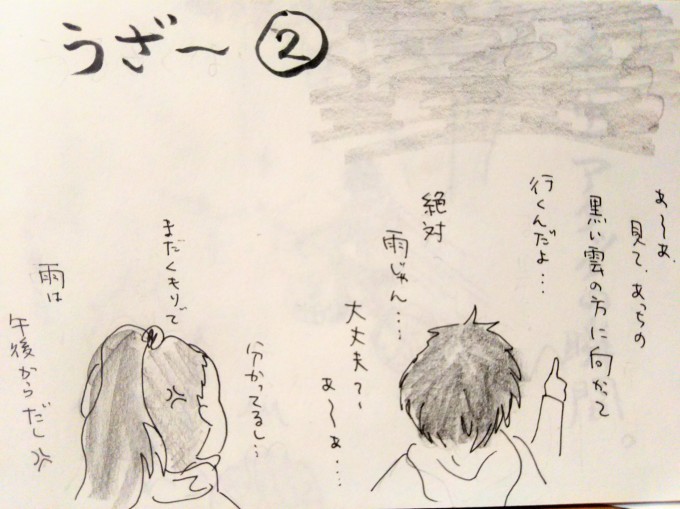 うざ〜 ②
あ〜あ、
見て、あっちの
黒い雲の方に向かって
行くんだよ…
絶対
雨じゃん…
大丈夫?、
あ〜あ…
分かってるし…
まだくもりで
雨は
午後からだし